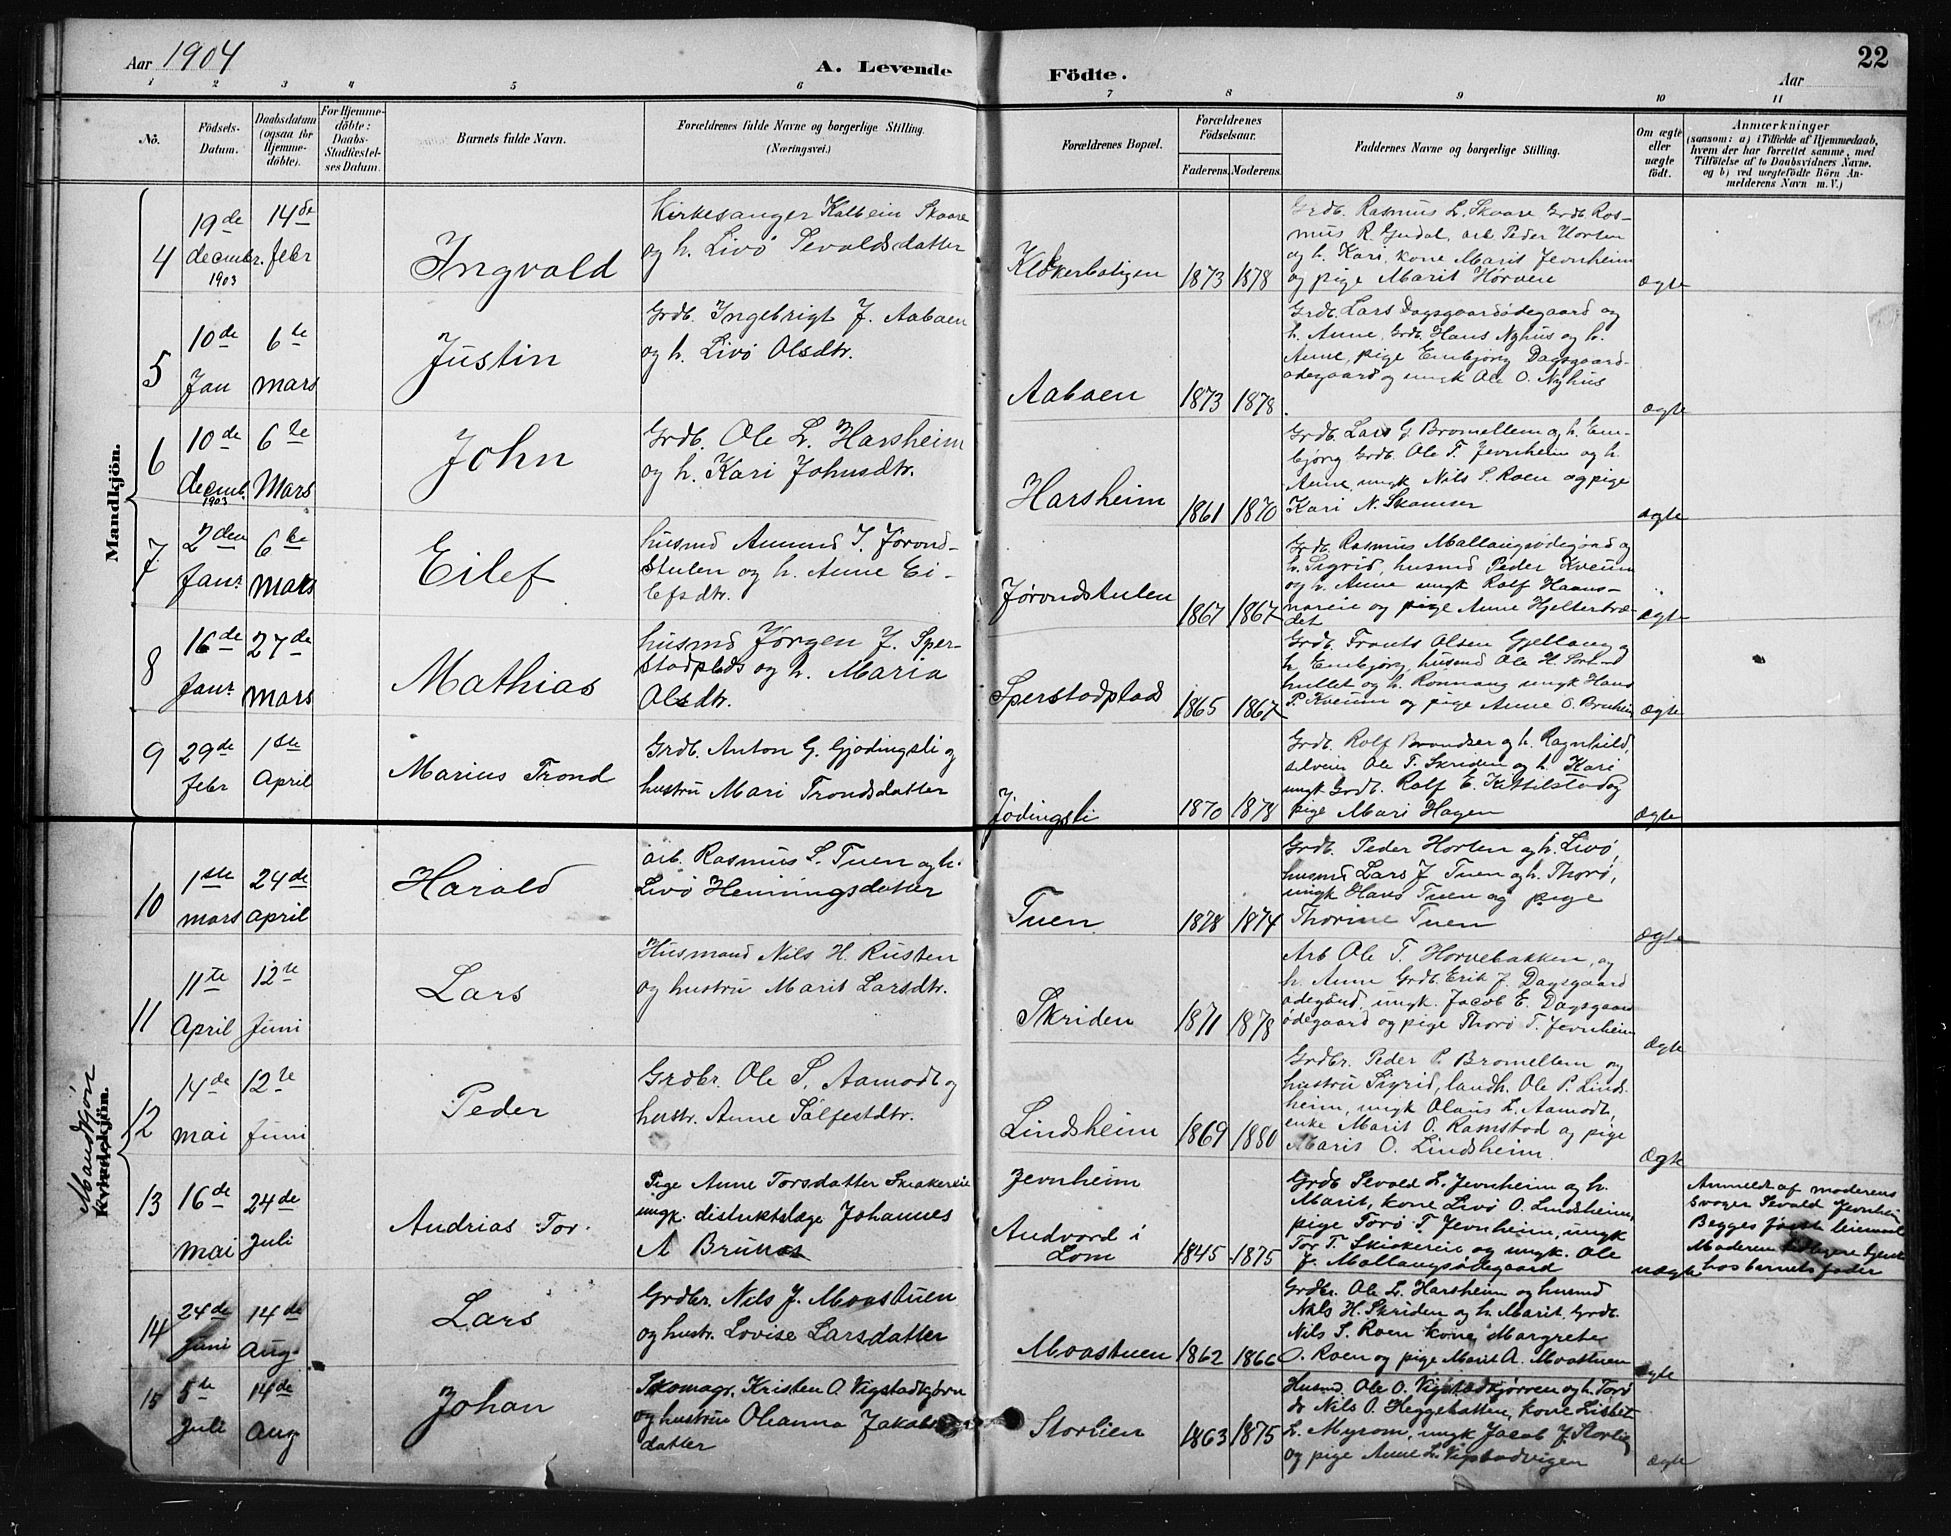 Aar 1904
A. Levende
Födte.
Aar
22
1 2 3 4 5 6 7 8 9 10 11
No.
Födsels-Datum.
Daabsdatum (ogsaa for Hjemme-döbte).
For Hjemme-döbte: Daabs-Stadfæstelses Datum.
Barnets fulde Navn.
Forældrenes fulde Navne og borgerlige Stilling. (Næringsvei.)
Forældrenes Bopæl.
Forældrenes Födselsaar.
Faderens. Moderens.
Faddernes Navne og borgerlige Stilling.
Om ægte eller uægte födt.
Anmærkninger
(saasom: a) i Tilfælde af Hjemmedaab,
hvem der har forrettet samme, med
Tilföielse af to Daabsvidners Navne.
og b) ved uægtefödte Börn An-
melderens Navn m. V.)
Mandkjön.
4
19de decembr. 1903
14de febr
Ingvald
Kirkesanger Kolbein Skaare
og h. Livö Sevaldsdatter
Klokkerboligen
1873 1878
Grdb. Rasmus L. Skaare Grdb. Ras-
mus R. Gudal, arb. Peder Horten
og h. Kari, kone Marit Jevnheim
og pige Marit Horven
ægte
5
10de Jan
6te mars
Justin
Grdb. Ingebrigt J. Aabaen
og h. Livö Olsdtr.
Aabaen
1873 1878
Grdb. Lars Dagsgaardødegaard og
h. Anne, Grdb. Hans Nyhus og h.
Anne, pige Embjørg Dagsgaard-
ødegaard og ungk Ole O. Nyhus
ægte
6
10de decmb. 1903
6te Mars
John
Grdb. Ole L. Harsheim
og h. Kari Johnsdtr.
Harsheim
1861 1870
Grdb. Lars G. Bromellem og h. Em-
björg Grdb. Ole T. Jevnheim og h.
Anne, ungk Nils S. Roen og pige
Kari N. Skamser
ægte
7
2den Janr.
6te mars
Eilef
husmd Amund J. Jörond-
stulen og h. Anne Ei-
lefsdtr.
Jörondstulen
1867 1867
Grdb. Rasmus Mallangsødegaard og
h. Sigrid, husmd Peder Kveum
og h. Anne ungk Rolf
og pige Anne Hjeltebræ-
det
ægte
8
16de Janr
27de mars
Mathias
husmd Jörgen J. Sper-
stadplads og h. Maria
Olsdtr.
Sperstadplads
1865 1867
Grdb. Frants Olsen Gjellang og
h. Embjörg, husmd Ole H.
og h. Rönnaug ungk Hans
P. Kveum og pige Anne O. Bruheim
ægte
9
29de febr
1ste April
Marius Trond
Grdb. Anton G. Gjödingsli og
hustru Mari Trondsdatter
Jödingsli
1870 1878
Grdb. Rolf Brandser og h. Ragnhild,
Ole T. Skriden og h. Kari
ungk Grdb. Rolf E. Kittilstad og
pige Mari Hagen
ægte
Mandkjön
Kvindekjön.
10
1ste mars
24de april
Harald
arb. Rasmus S. Tuen og h.
Livö Henningsdatter
Tuen
1878 1874
Grdb. Peder Horten og h. Livö,
husmd Lars J Tuen og h. Thorö,
ungk Hans Tuen og pige
Thorine Tuen
ægte
11
11te April
12te Juni
Lars
Husmand Nils H. Rusten
og hustru Marit Larsdtr.
Skriden
1871 1878
Arb Ole T. Horvebakken, og
h. Anne Grdb. Erik J. Dagsgaard
ødegård, ungk. Jacob E. Dagsgaard
ødegaard og pige Thorö T. Jevnheim
ægte
12
14de mai
12te Juni
Peder
Grdbr. Ole S. Aamodt og
hustr. Anne Sölfestdtr.
Lindsheim
1869 1880
Grdbr. Peder P. Bromellem og
hustru Sigrid, landh. Ole P. Linds-
heim, ungk Olaus L. Aamodt,
enke Marit O. Ramstad og pige
Marit O. Lindsheim.
Ægte
13
16de mai
24de Juli
Andrias Tor.
Pige Anne Torsdatter Skiakereie
ungk. distriktslæge Johannes
A Bruuns
Jevnheim
Andvord i
Lom
1845 1875
Grdb Sevald L. Jevnheim og h.
Marit, kone Livö O. Lindsheim,
pige Torö T. Jevnheim, ungk
Tor T. Skiakereie og ungk. Ole
J. Mallangsødegaard
uægte
Anmeldt af moderens
svoger Sevald Jevnheim
Begges förste leiermaal
Moderen tidligere tjent
hos barnets fader
14
24de Juni
14de Aug.
Lars
Grdbr. Nils J. Moastuen
og hustr. Lovise Larsdatter
Moastuen
1862 1866
Grdbr. Ole L. Harsheim og husmd
Nils H. Skriden og h. Marit, Grdb.
Nils S. Roen kone Margrete
O. Roen og pige Marit A. Moastuen
ægte
15
5te Juli
14de Aug
Johan
Skomagr. Kristen O. Vigstadkjörn
og hustru Oleanna Jakobs
datter
Storlien
1863 1875
Husmd. Ole O. Vigstadkjörren og h. Tord
do Nils O. Heggebotten, kone Lisbet
L. Myrom, ungk Jacob J. Storlien
og pige Anne L. Vigstadvigen
ægte